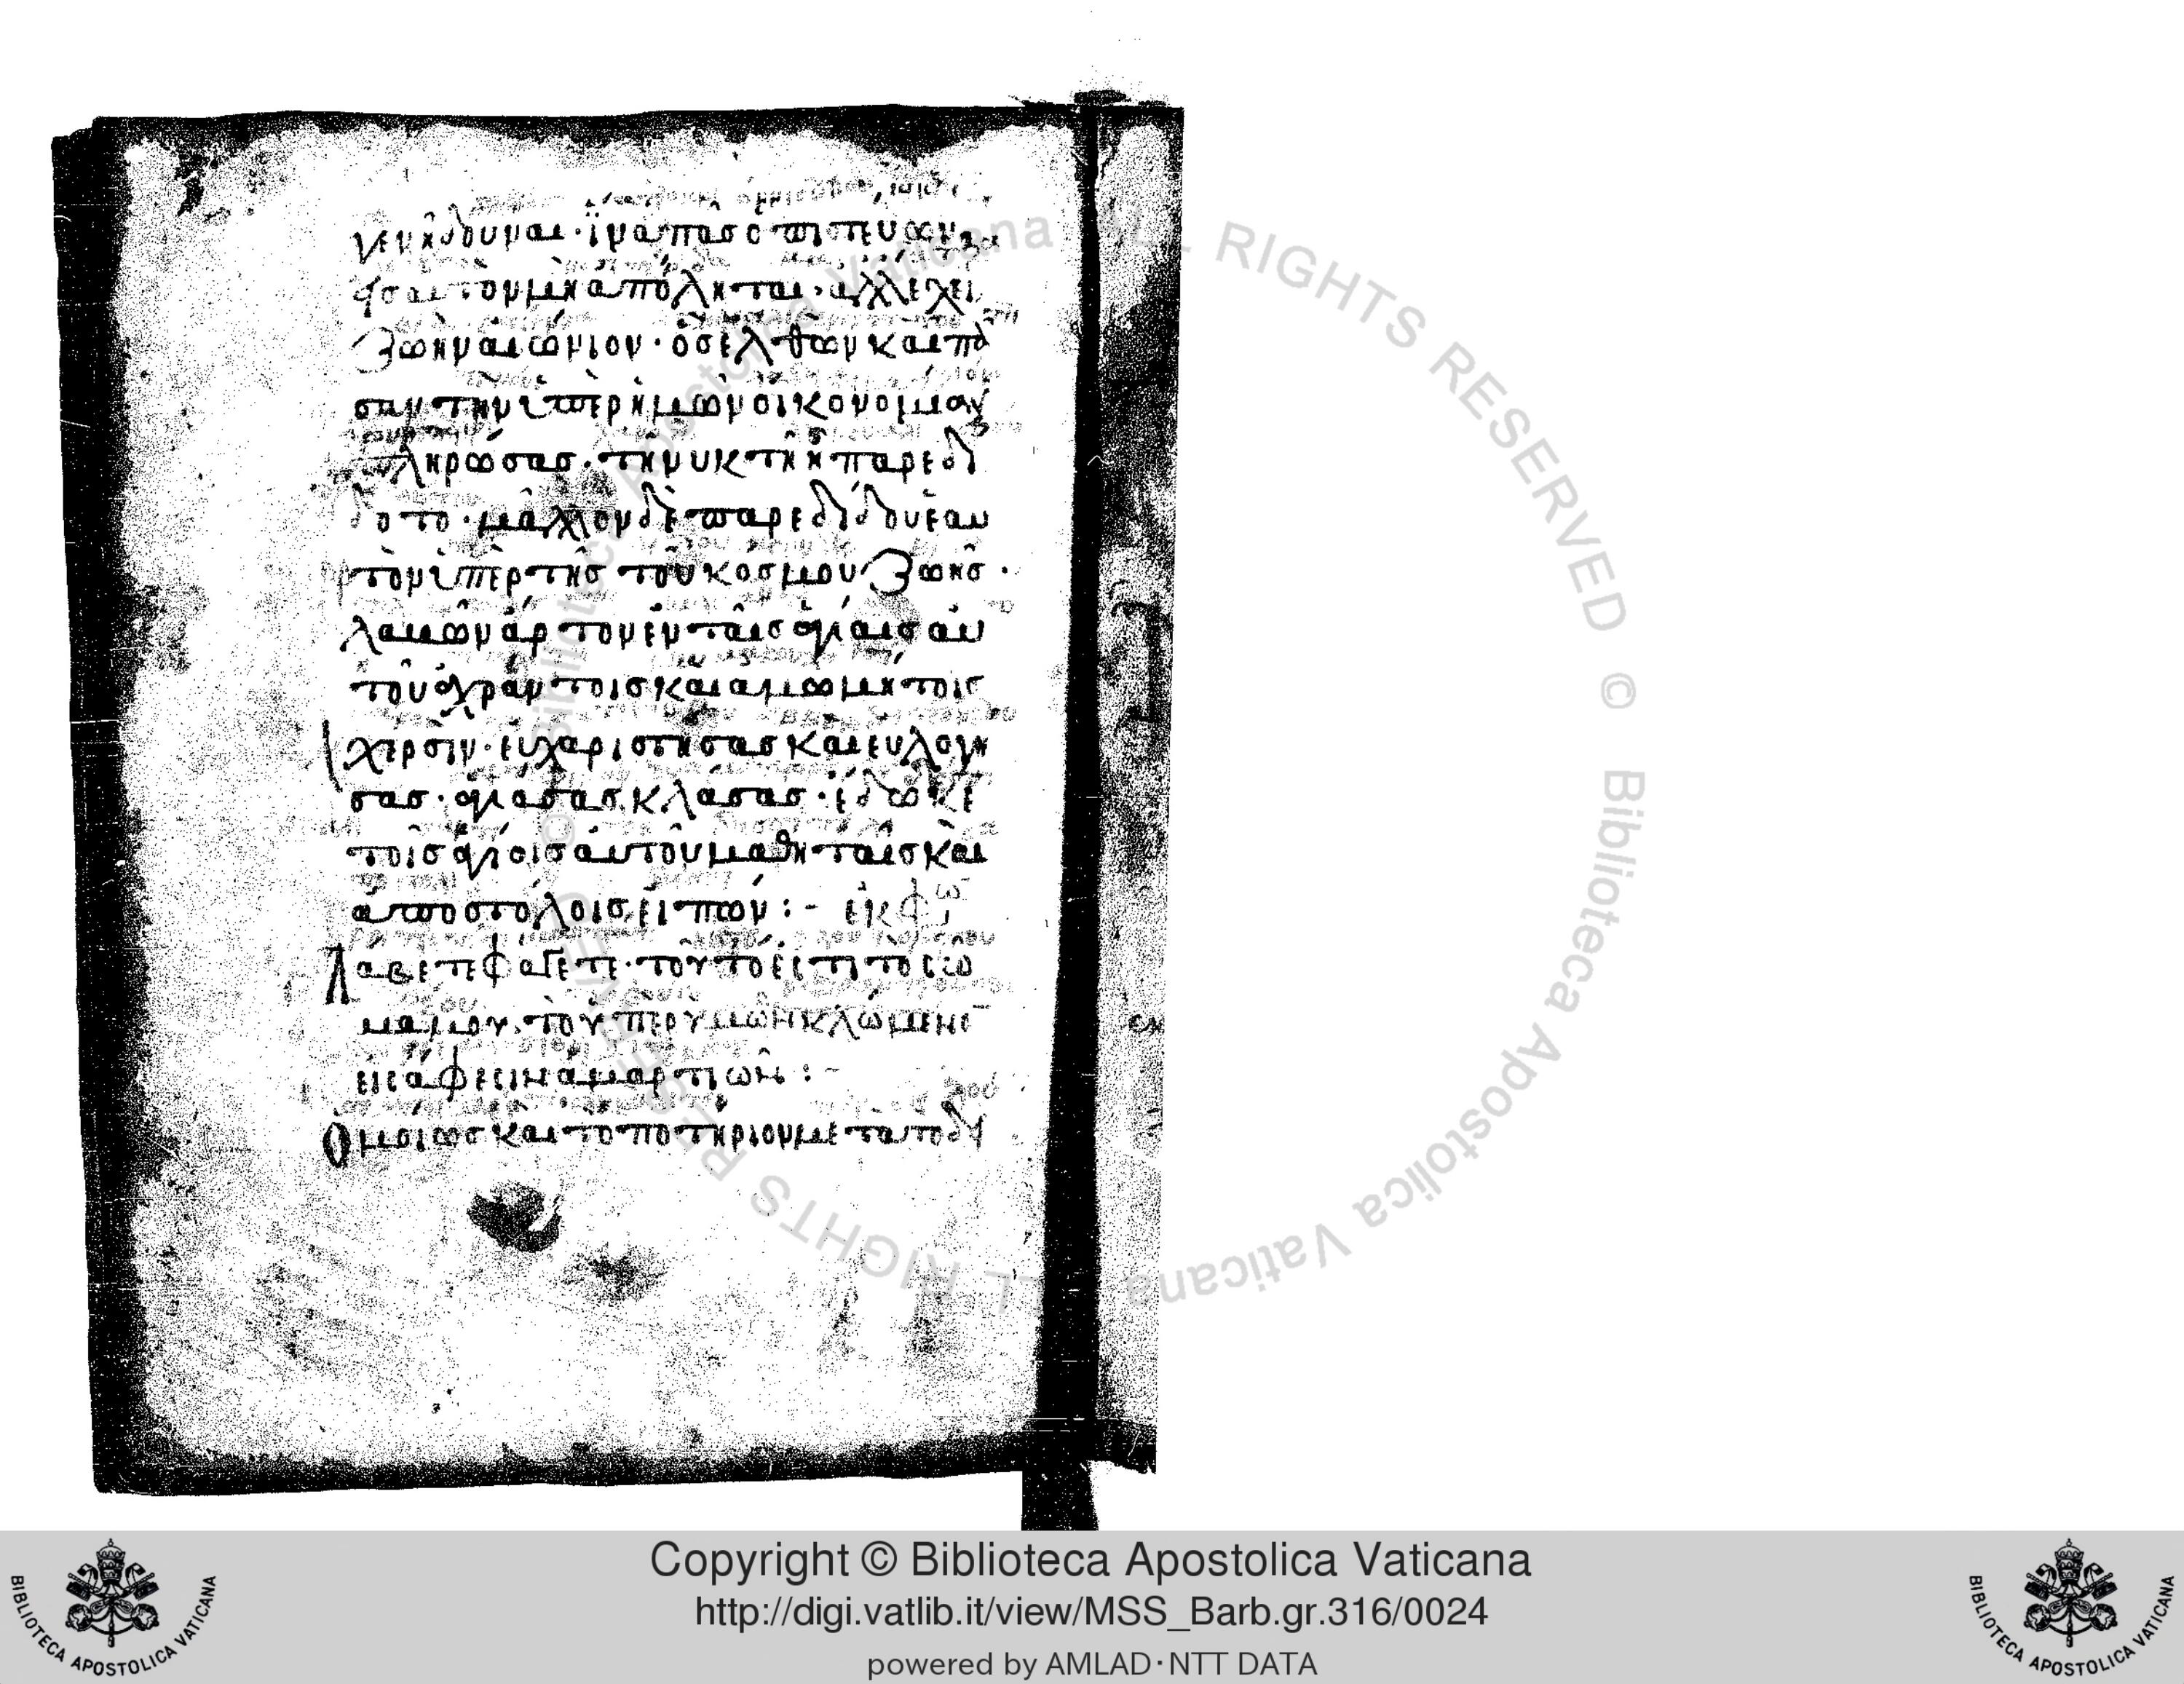 γενῆ δοῦναι· ἵνα πᾶς ὁ πιστεύων
εἰς αὐτὸν μὴ ἀπόληται· ἀλλ' ἔχει
ζωὴν αἰώνιον· ὃς ἐλθὼν καὶ πᾶ
σαν τὴν ὑπὲρ ἡμῶν οἰκονομίαν
πληρώσας· τῇ νυκτὶ ἧ παρεδί
δοτο· μᾶλλον δὲ παρεδίδου ἑαυ
τὸν ὑπὲρ τῆς τοῦ κόσμου ζωῆς·
λαβὼν ἄρτον ἐν ταῖς ἁγίαις αὐ
τοῦ ἀχράντοις καὶ ἀμωμήτοις
χερσίν· εὐχαριστήσας καὶ εὐλογή
σας· ἁγιάσας κλάσας· ἔδωκε
τοῖς ἁγίοις αὐτοῦ μαθηταῖς καὶ
ἀποστόλοις εἰπών :- ἐκφω
Λάβετε φάγετε· τοῦτό ἐστι τὸ σῶ
μα μου· τὸ ὑπὲρ ὑμῶν κλώμενο
εἰς ἄφεσιν ἁμαρτιῶν :-
Ὁμοίως καὶ τὸ ποτήριον μετὰ τὸ δει
ALL RIGHTS RESERVED © Biblioteca Apostolica Vaticana
Copyright © Biblioteca Apostolica Vaticana
http://digi.vatlib.it/view/MSS_Barb.gr.316/0024
powered by AMLAD·NTT DATA
BIBLIOTECA APOSTOLICA VATICANA
BIBLIOTECA APOSTOLICA VATICANA